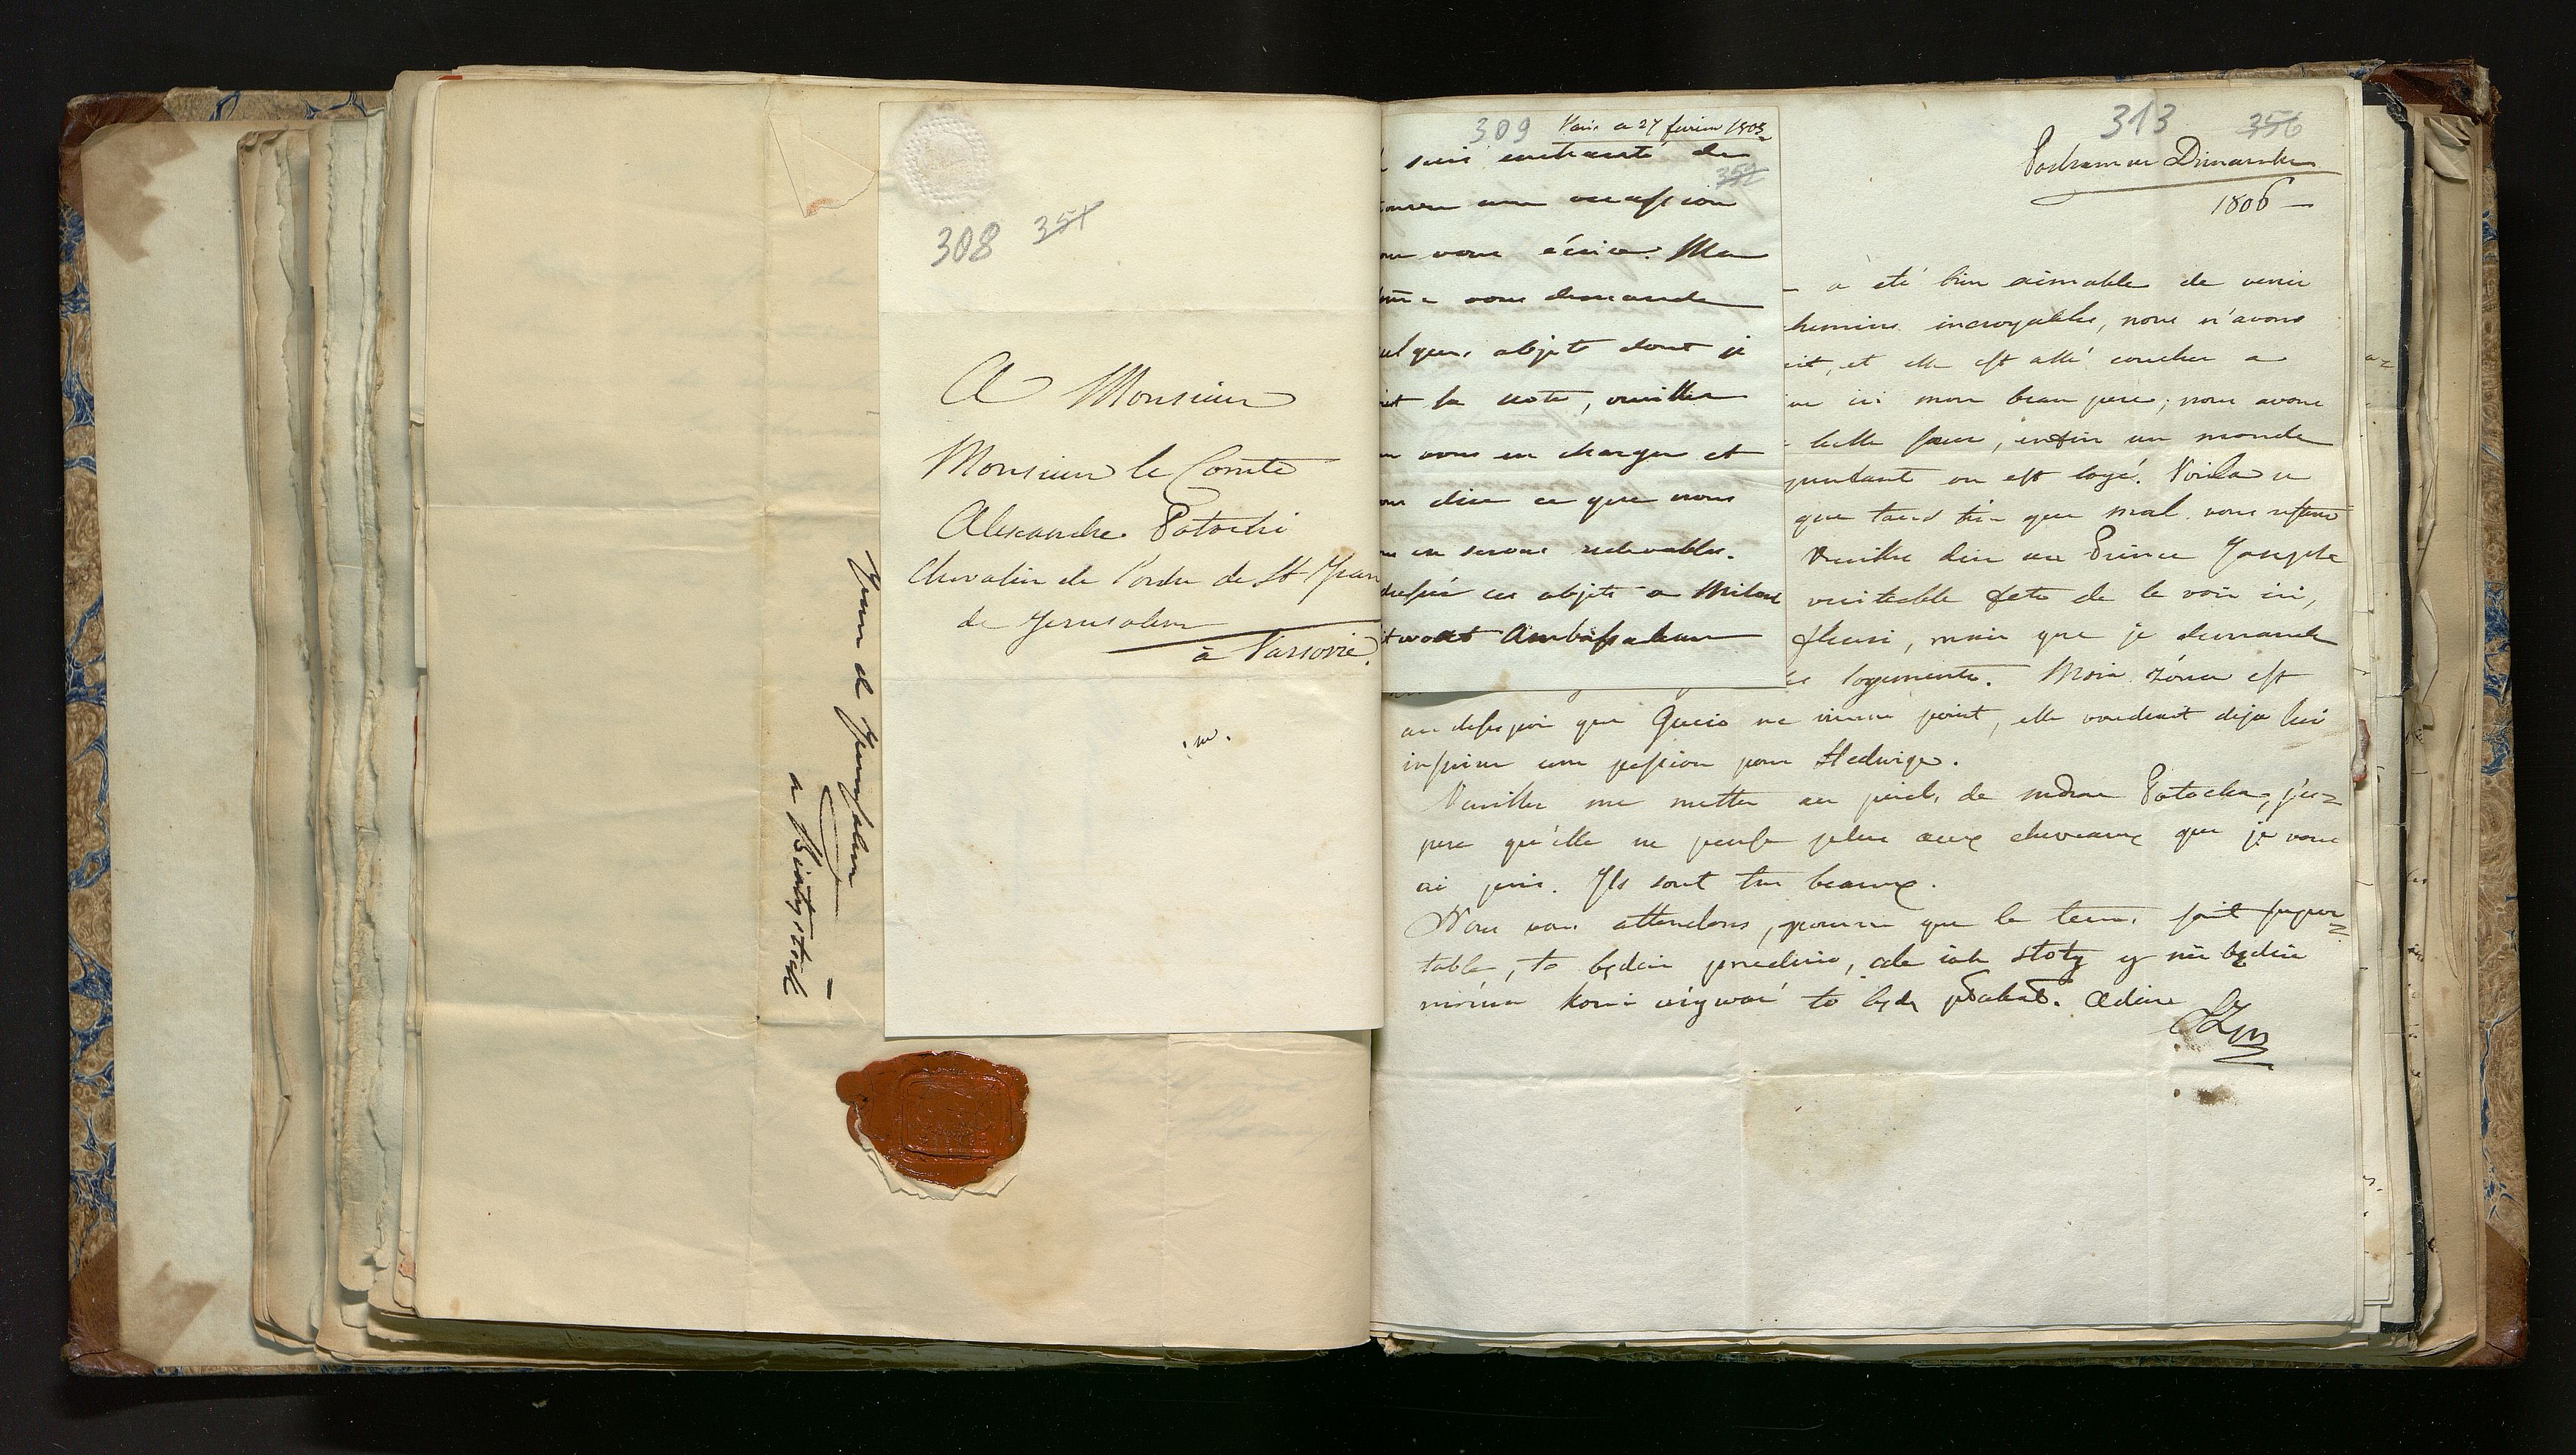 308 351
A Monsieur
Monsieur le Comte
Alexandre Potocki
Chevalier de l'ordre de St Jean
de Jerusalem
à Varsovie.
Jean de Jerusalem
a Biał
309 Paris ce 27 fevrier 1803
352
suis enchanté de
une occassion
vous écrire. Ma
vous demande
objets dont je
la note, veuillez
vous en charger et
dire ce que nous
en serons redevables.
ces objets a Milord
Ambassadeur
313 356
ce Dimanche
1806 —
a été bien aimable de venir
incroyables, nous n'avons
et elle est allé coucher a
ici mon beau pere; nous avons
belle sœur, enfin un monde
on est logé. Voila
que tant bien que mal vous
Veuillez dire au Prince Joseph
veritable fete de le voir ici,
mais que je demande
logements. Moia żona est
au desespoir que Gucio ne vienne point, elle voudrait deja lui
inspirer une passion pour Hedwige.
Veuillez me mettre au pieds de mdme Potocka, j'es=
pere qu'elle ne pense plus aux cheveaux que je vous
ai pris. Ils sont tres beaux.
Nous vous attendons, pourvu que le tems soit suppor=
table, to będzie przednio, ale iak słoty y nie będzie
można koni używać to będę płakał. Adieu